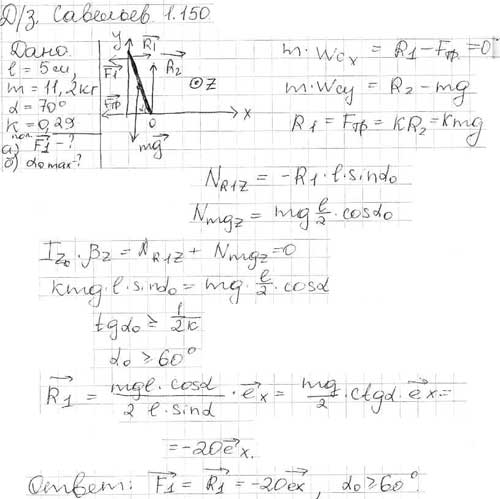 Д/з. Савельев 1.150.
Дано
l = 5 см,
m = 11,2 кг
α = 70°
k = 0,29
пол.
а) F⃗1 - ?
б) α₀ max - ?
y R⃗1
F⃗1 R2
⊙Z
F⃗тр
0 x
mg⃗
m·Wcx = R1 - Fтр = 0
m·Wcy = R2 - mg
R1 = Fтр = KR2 = Kmg
N_R1Z = -R1·l·sinα₀
N_mgZ = mg l/2 · cosα₀
I_Z₀·β_Z = N_R1Z + N_mgZ = 0
kmg·l·sinα₀ = mg·l/2·cosα
tgα₀ ≥ 1/2k
α₀ ≥ 60°
R⃗1 = mgl·cosα / 2l·sinα · e⃗x = mg/2 · ctgα·e⃗x =
= -20e⃗x.
Ответ: F⃗1 = R⃗1 = -20e⃗x, α₀ ≥ 60°.